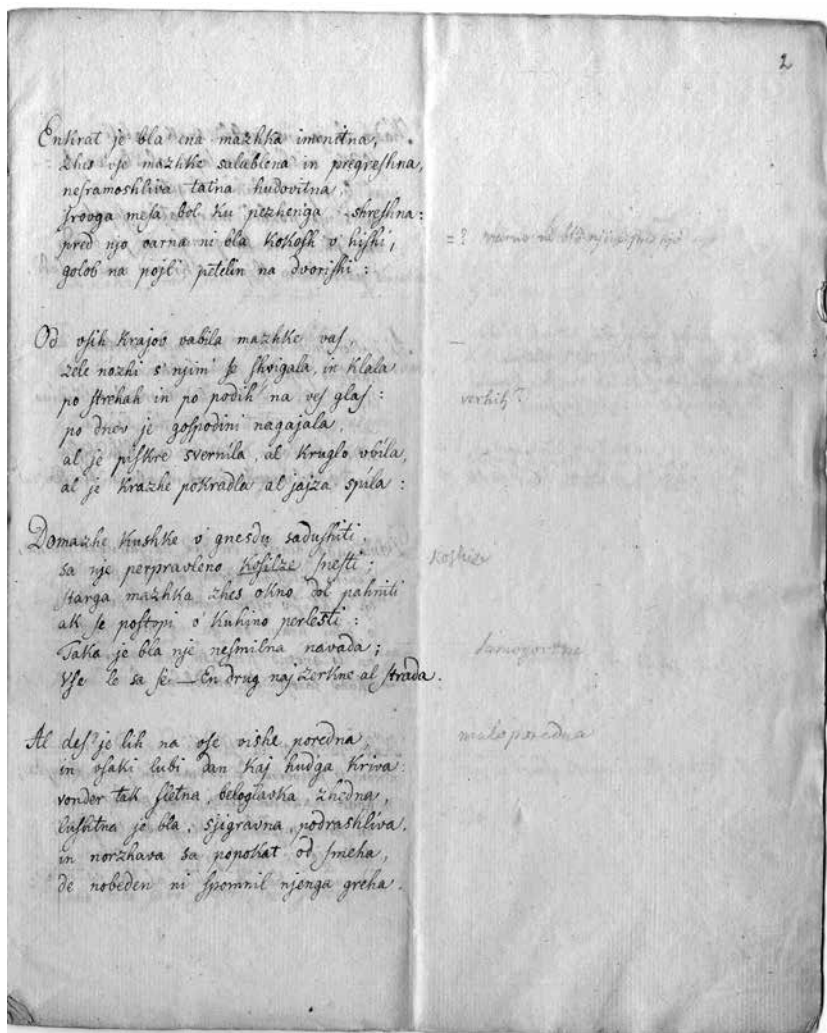 2
Enkrat je bla ena mazhka imenitna,
zhes vse mazhke salublena in pregreſhna,
neſramoshliva tatna hudovitna,
ſrovga meſa bol ku pezhenga shreſhna:
pred njo varna ni bla kokoſh v hiſhi,
golob na pojli petelin na dvoriſhi:
= ?
Od vſih krajov vabila mazhke vaſ,
zele nozhi s'njim' ſe ſhvigala, in klala
po ſtrehah in po podih' na veſ glaſ:
verhih?
po dnev je goſpodini nagajala,
al je piſkre svernila, al kruglo vbila,
al je krazhe pokradla, al jajza spila:
Domazhe kushke v' gnesdu saduſhiti,
sa nje perpravleno koſilze ſneſti;
koſhize
ſtarga mazhka zhes okno dol pahniti
ak ſe poſtopi v' kuhino perleſti:
Taka je bla nje neſmilna navada;
ſamogoltne
Vſe le sa ſe — En drug naj zerkne al ſtrada.
Al deſ' je lih na vſe viſhe poredna,
maloporedna
in vſaki lubi dan kaj hudga kriva:
vonder tak ſletna, beloglavka, zhedna,
luſhtna je bla, sjigravna, podrashliva,
in norzhava sa popokat od ſmeha,
de nobeden ni ſpomnil njenga greha.